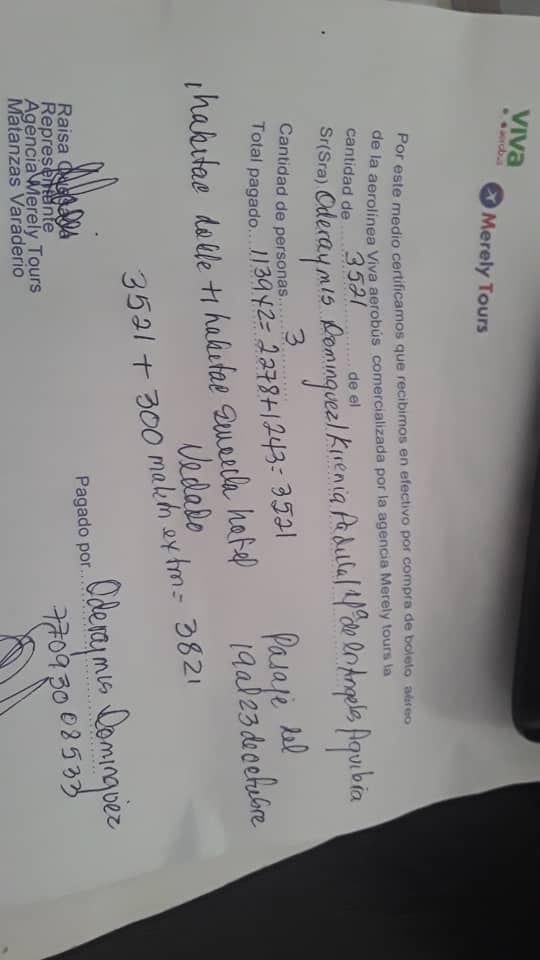 Viva
aerobus
Merely Tours
Por este medio certificamos que recibimos en efectivo por compra de boleto aéreo
de la aerolínea Viva aerobús comercializada por la agencia Merely tours la
cantidad de ........3521........ de el
Sr(Sra) Oderaymis Dominguez/Kirenia Padula/Mª de los Angeles Aguibia
Cantidad de personas.......3.......
Total pagado....1139x2=2278+1243=3521
Pasaje del
19 al 23 de octubre
1 habitac doble +1 habitac sencilla hotel
Vedado
3521 + 300 malet extra = 3821
Raisa
Representante
Agencia Merely Tours
Matanzas Varaderio
Pagado por....Oderaymis Dominguez
77093008533